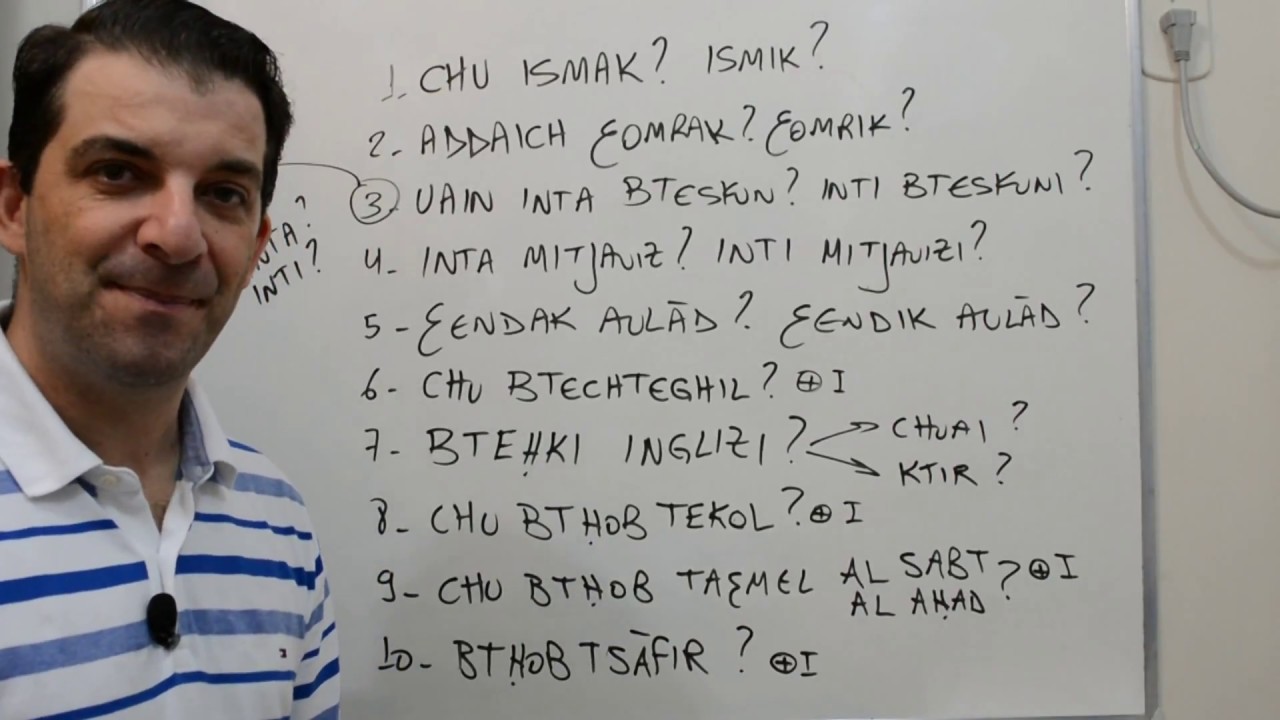 1. CHU ISMAK? ISMIK?
2- ADDAICH ƸOMRAK? ƸOMRIK?
3- UAIN INTA BTESKUN? INTI BTESKUNI?
?
INTI?
4- INTA MITJAUIZ? INTI MITJAUIZI?
5- ƸENDAK AULĀD? ƸENDIK AULĀD?
6- CHU BTECHTEGHIL? ⊕ I
7- BTEḤKI INGLIZI? CHUAI?
KTIR?
8- CHU BTḤOB TEKOL? ⊕ I
9- CHU BTḤOB TAƸMEL AL SABT? ⊕ I
AL AḤAD
10- BTḤOB TSĀFIR? ⊕ I